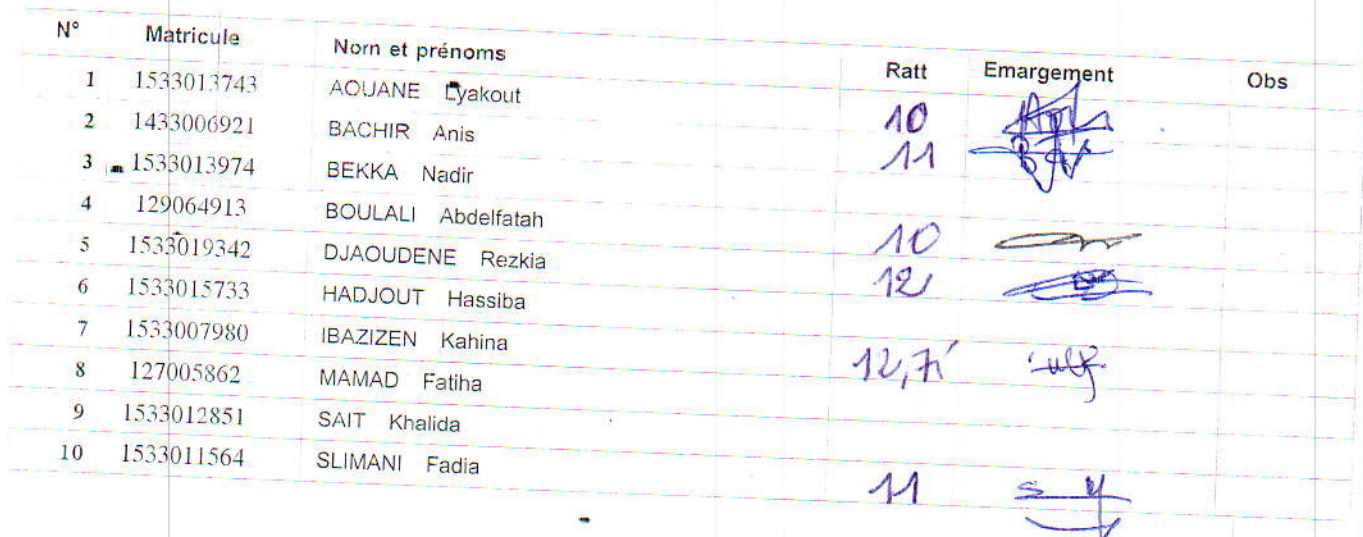 N° Matricule Nom et prénoms Ratt Emargement Obs
1 1533013743 AOUANE Lyakout 10
2 1433006921 BACHIR Anis 11
3 1533013974 BEKKA Nadir
4 129064913 BOULALI Abdelfatah 10
5 1533019342 DJAOUDENE Rezkia 12
6 1533015733 HADJOUT Hassiba
7 1533007980 IBAZIZEN Kahina 12,75
8 127005862 MAMAD Fatiha
9 1533012851 SAIT Khalida
10 1533011564 SLIMANI Fadia 11